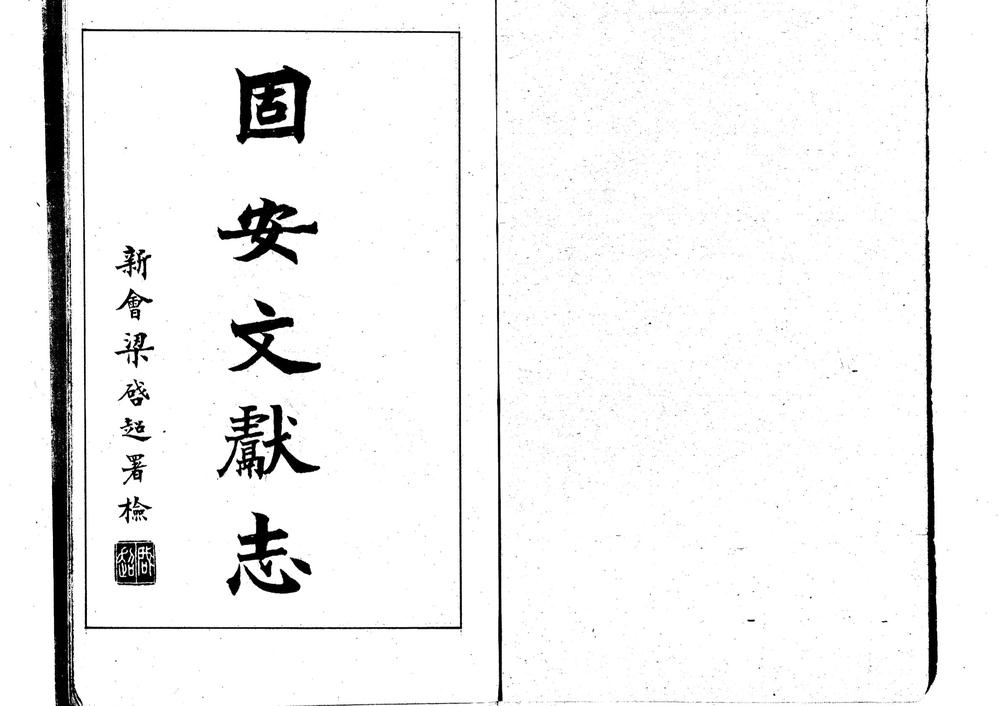 固安文獻志
新會梁啓超署檢
啓超